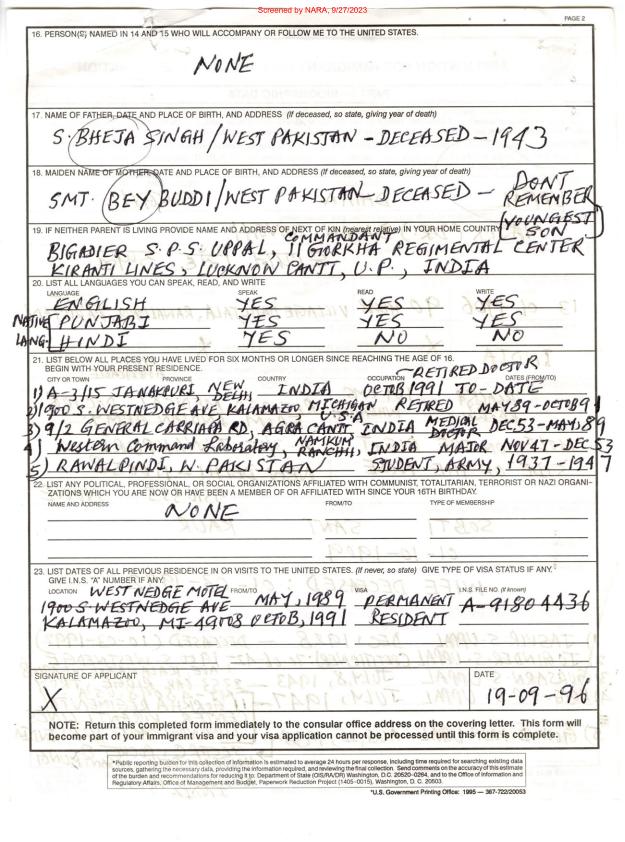 Screened by NARA, 9/27/2023
PAGE 2
16. PERSON(S) NAMED IN 14 AND 15 WHO WILL ACCOMPANY OR FOLLOW ME TO THE UNITED STATES.
NONE
17. NAME OF FATHER, DATE AND PLACE OF BIRTH, AND ADDRESS (If deceased, so state, giving year of death)
S. BHEJA SINGH / WEST PAKISTAN - DECEASED - 1943
18. MAIDEN NAME OF MOTHER, DATE AND PLACE OF BIRTH, AND ADDRESS (If deceased, so state, giving year of death)
SMT. BEY BUDDI / WEST PAKISTAN - DECEASED - DON'T REMEMBER
19. IF NEITHER PARENT IS LIVING PROVIDE NAME AND ADDRESS OF NEXT OF KIN (nearest relative) IN YOUR HOME COUNTRY
(YOUNGEST SON
COMMANDANT
BIGADIER S.P.S. UPPAL, 11 GORKHA REGIMENTAL CENTER
KIRANTI LINES, LUCKNOW CANTT, U.P., INDIA
20. LIST ALL LANGUAGES YOU CAN SPEAK, READ, AND WRITE
LANGUAGE SPEAK READ WRITE
ENGLISH YES YES YES
NATIVE PUNJABI YES YES YES
LANG. HINDI YES NO NO
21. LIST BELOW ALL PLACES YOU HAVE LIVED FOR SIX MONTHS OR LONGER SINCE REACHING THE AGE OF 16.
BEGIN WITH YOUR PRESENT RESIDENCE.
CITY OR TOWN PROVINCE COUNTRY OCCUPATION DATES (FROM/TO)
- RETIRED DOCTOR
1) A-3/15 JANAKPURI, NEW DELHI INDIA OCTOB 1991 TO-DATE
2) 1900 S. WESTNEDGE AVE, KALAMAZOO MICHIGAN U.S.A RETIRED MAY 89-OCTOB 91
3) 9/2 GENERAL CARRIAPA RD, AGRA CANTT, INDIA MEDICAL DOCTOR DEC 53-MAY, 89
4) Western Command Laboratory, NAMKUM RANCHI, INDIA MAJOR NOV 47-DEC 53
5) RAWALPINDI, W. PAKISTAN STUDENT, ARMY, 1937-1947
22. LIST ANY POLITICAL, PROFESSIONAL, OR SOCIAL ORGANIZATIONS AFFILIATED WITH COMMUNIST, TOTALITARIAN, TERRORIST OR NAZI ORGANI-
ZATIONS WHICH YOU ARE NOW OR HAVE BEEN A MEMBER OF OR AFFILIATED WITH SINCE YOUR 16TH BIRTHDAY.
NAME AND ADDRESS FROM/TO TYPE OF MEMBERSHIP
NONE
23. LIST DATES OF ALL PREVIOUS RESIDENCE IN OR VISITS TO THE UNITED STATES. (If never, so state) GIVE TYPE OF VISA STATUS IF ANY.
GIVE I.N.S. "A" NUMBER IF ANY.
LOCATION FROM/TO VISA I.N.S. FILE NO. (If known)
WEST NEDGE MOTEL
1900 S-WESTNEDGE AVE MAY, 1989 PERMANENT A-91804436
KALAMAZOO, MI-49008 OCTOB, 1991 RESIDENT
SIGNATURE OF APPLICANT DATE
X 19-09-96
NOTE: Return this completed form immediately to the consular office address on the covering letter. This form will
become part of your immigrant visa and your visa application cannot be processed until this form is complete.
*Public reporting burden for this collection of information is estimated to average 24 hours per response, including time required for searching existing data
sources, gathering the necessary data, providing the information required, and reviewing the final collection. Send comments on the accuracy of this estimate
of the burden and recommendations for reducing it to: Department of State (OIS/RA/DR) Washington, D.C. 20520-0264, and to the Office of Information and
Regulatory Affairs, Office of Management and Budget, Paperwork Reduction Project (1405-0015), Washington, D.C. 20503.
*U.S. Government Printing Office: 1995 — 387-722/20053